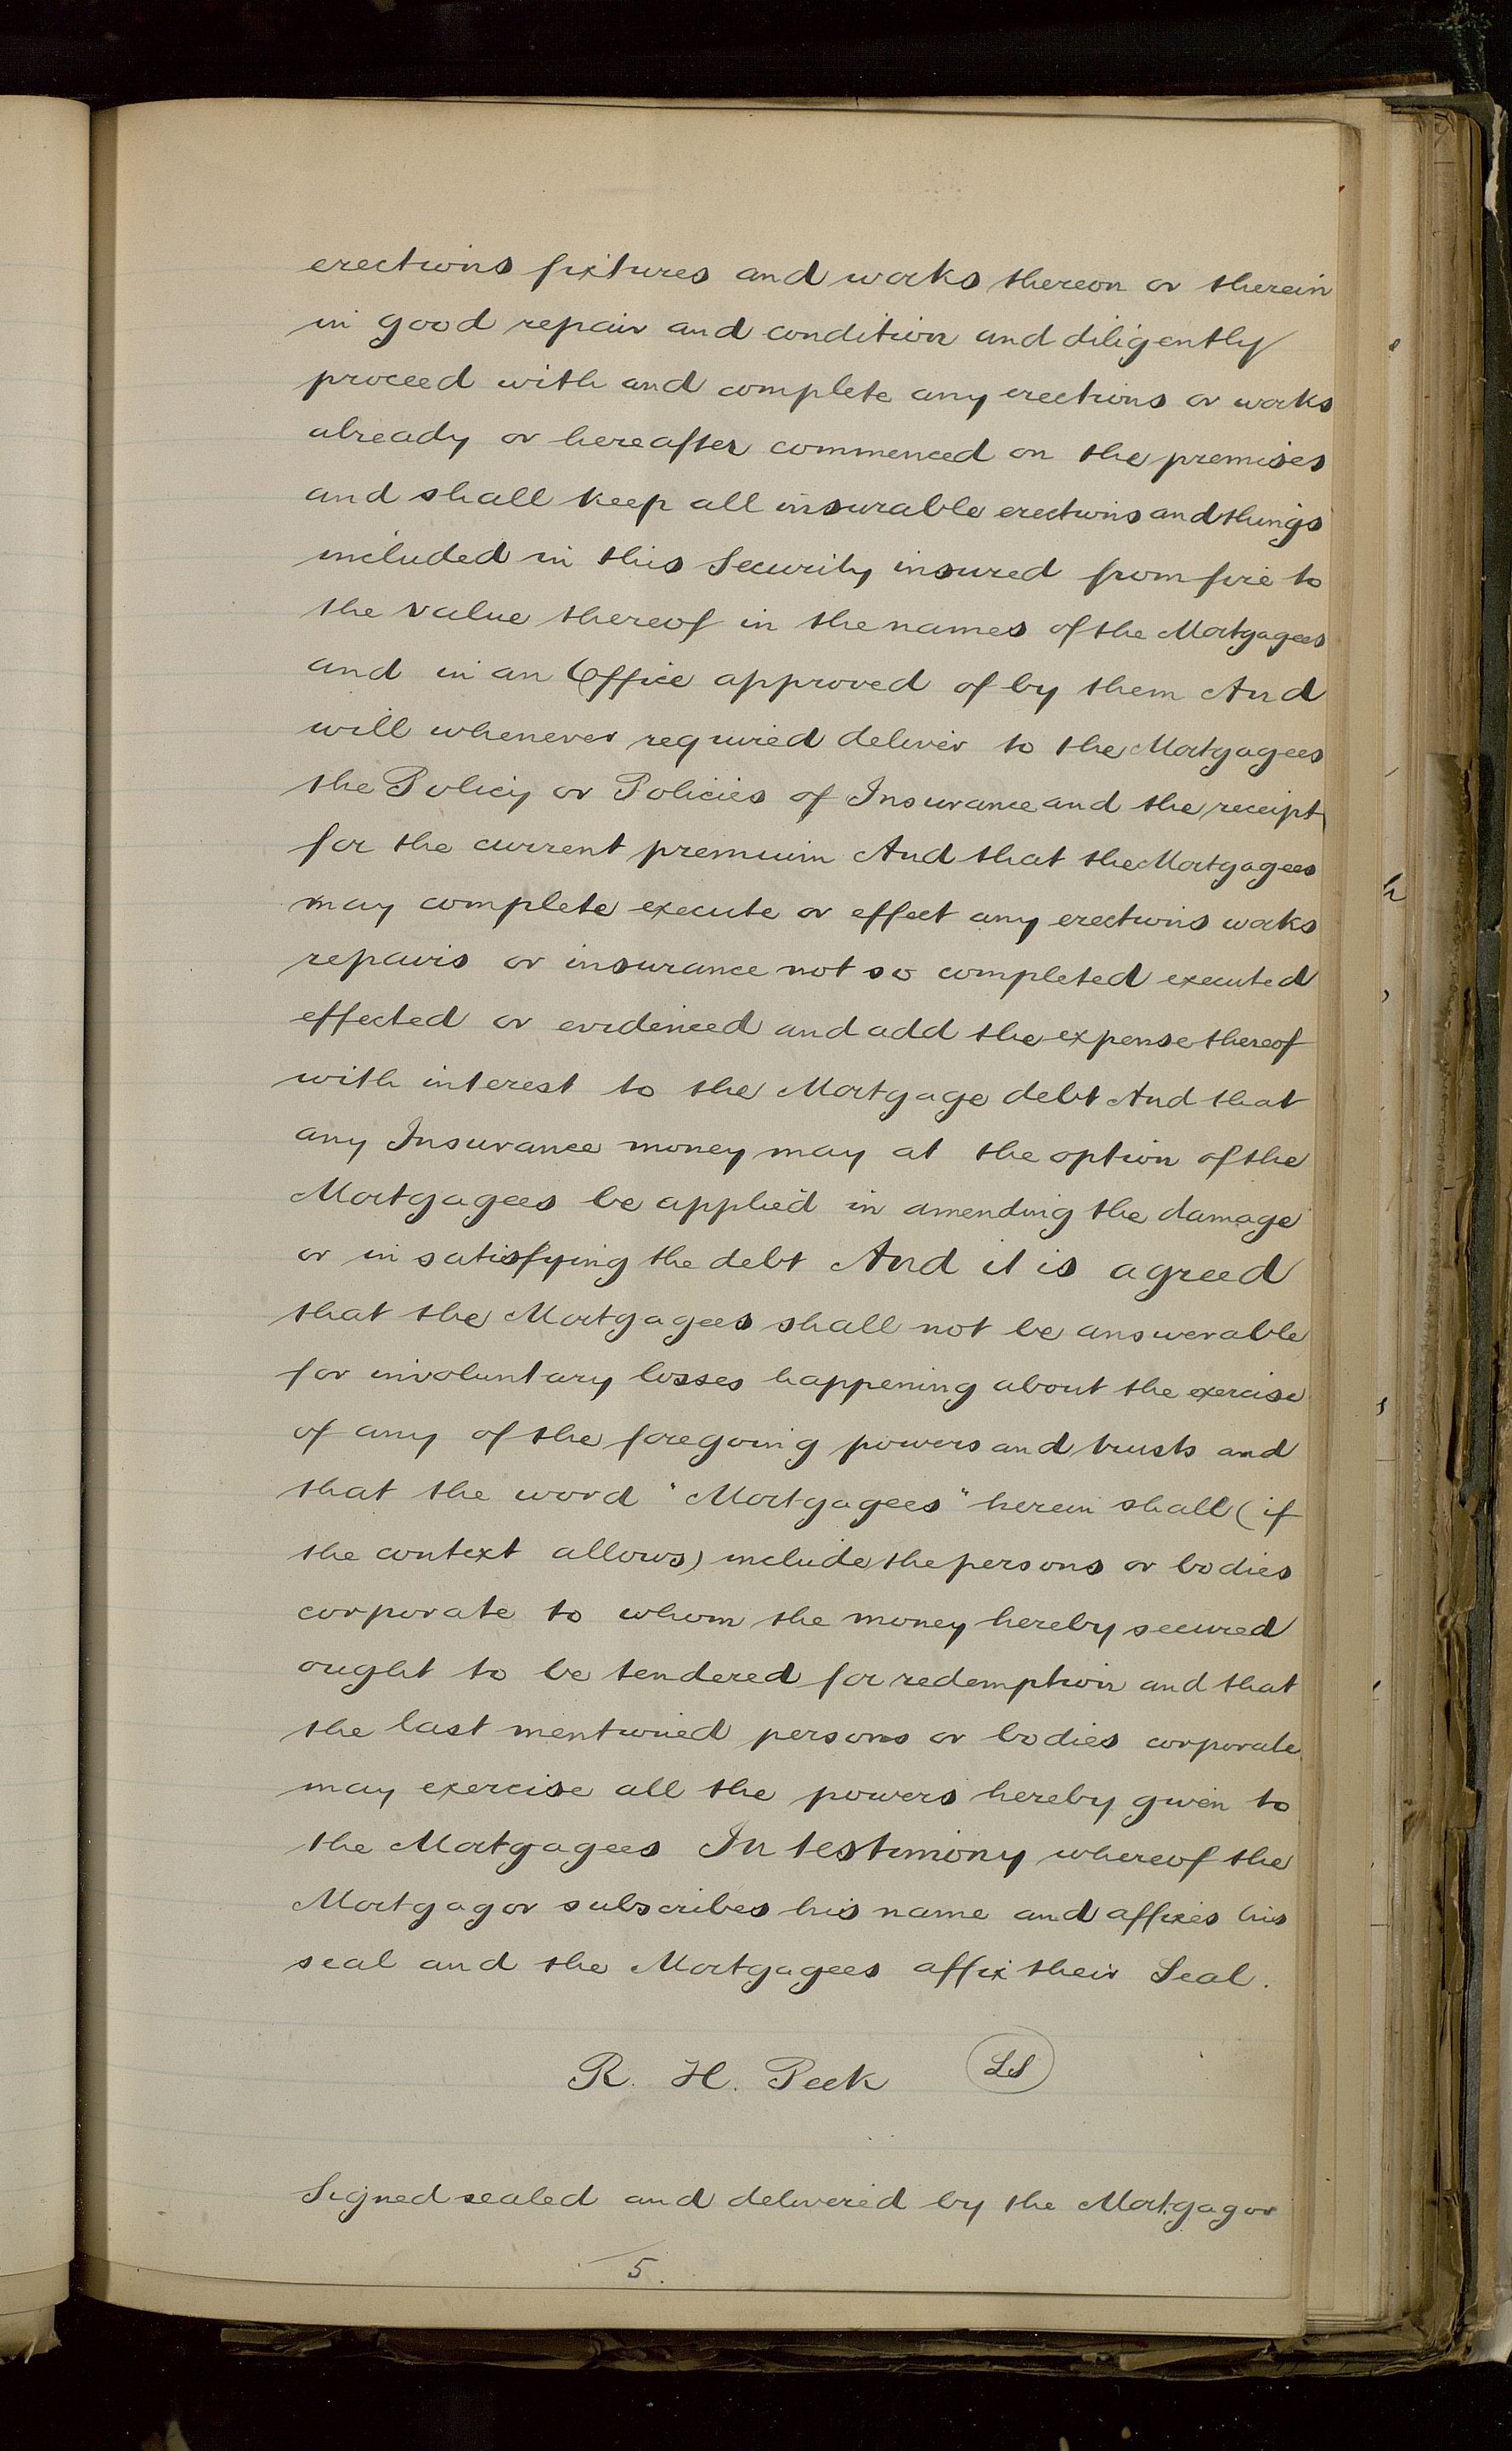 erections fixtures and works thereon or therein
in good repair and condition and diligently
proceed with and complete any erections or works
already or hereafter commenced on the premises
and shall keep all insurable erections and things
included in this Security insured from fire to
the value thereof in the names of the Mortgagees
and in an Office approved of by them And
will whenever required deliver to the Mortgagees
the Policy or Policies of Insurance and the receipt
for the current premium And that the Mortgagees
may complete execute or effect any erections works
repairs or insurance not so completed executed
effected or evidenced and add the expense thereof
with interest to the Mortgage debt And that
any Insurance money may at the option of the
Mortgagees be applied in amending the damage
or in satisfying the debt And it is agreed
that the Mortgagees shall not be answerable
for involuntary losses happening about the exercise
of any of the foregoing powers and trusts and
that the word "Mortgagees" herein shall (if
the context allows) include the persons or bodies
corporate to whom the money hereby secured
ought to be tendered for redemption and that
the last mentioned persons or bodies corporate
may exercise all the powers hereby given to
the Mortgagees In testimony whereof the
Mortgagor subscribes his name and affixes his
seal and the Mortgagees affix their Seal.
R. H. Peek LS
Signed sealed and delivered by the Mortgagor
5.